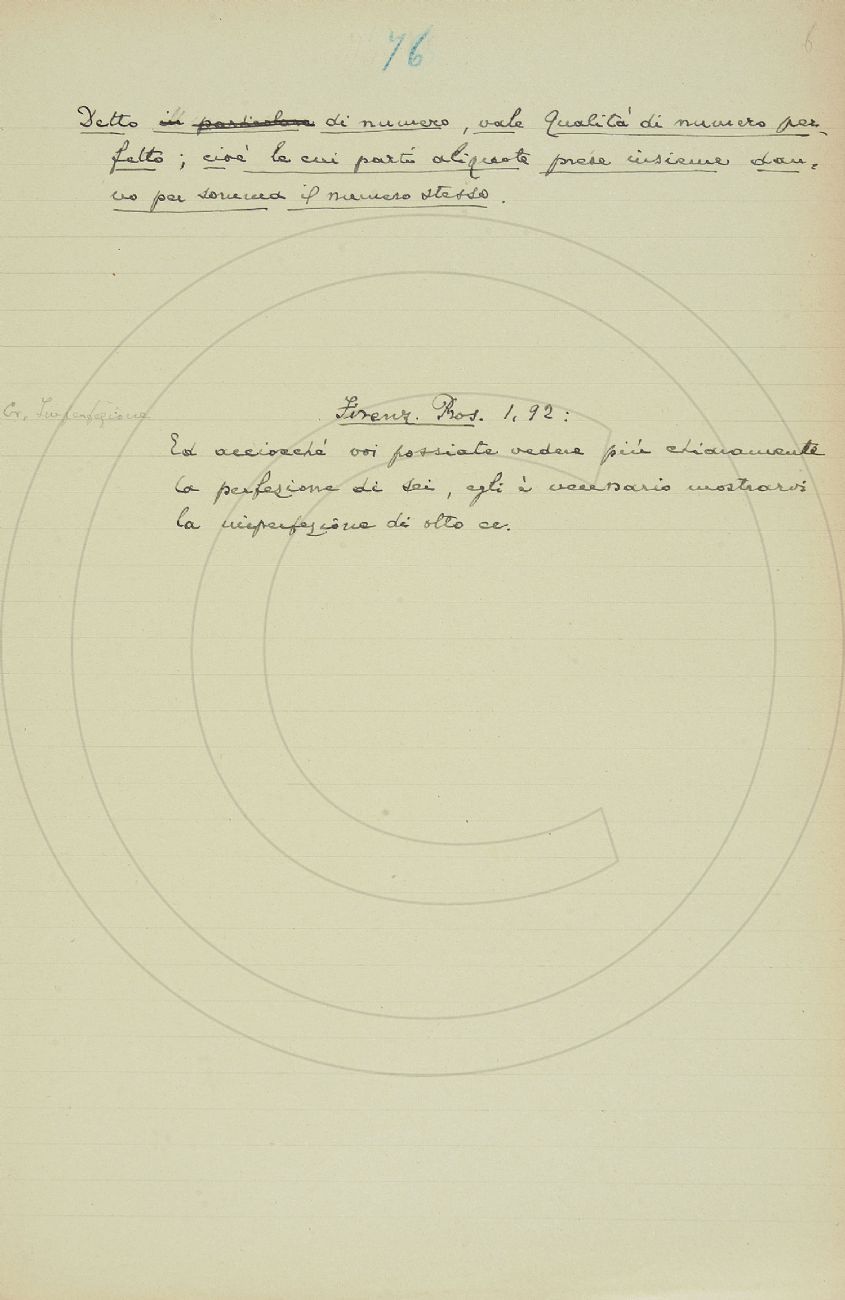 76
6
Detto in particolare di numero, vale Qualità di numero per-
fetto; cioè le cui parti aliquote prese insieme dan-
no per somma il numero stesso.
Cr. Imperfezione
Firenz. Pros. 1, 92:
Ed acciocchè voi possiate vedere più chiaramente
la perfezione di sei, egli è necessario mostrarvi
la imperfezione di otto ec.